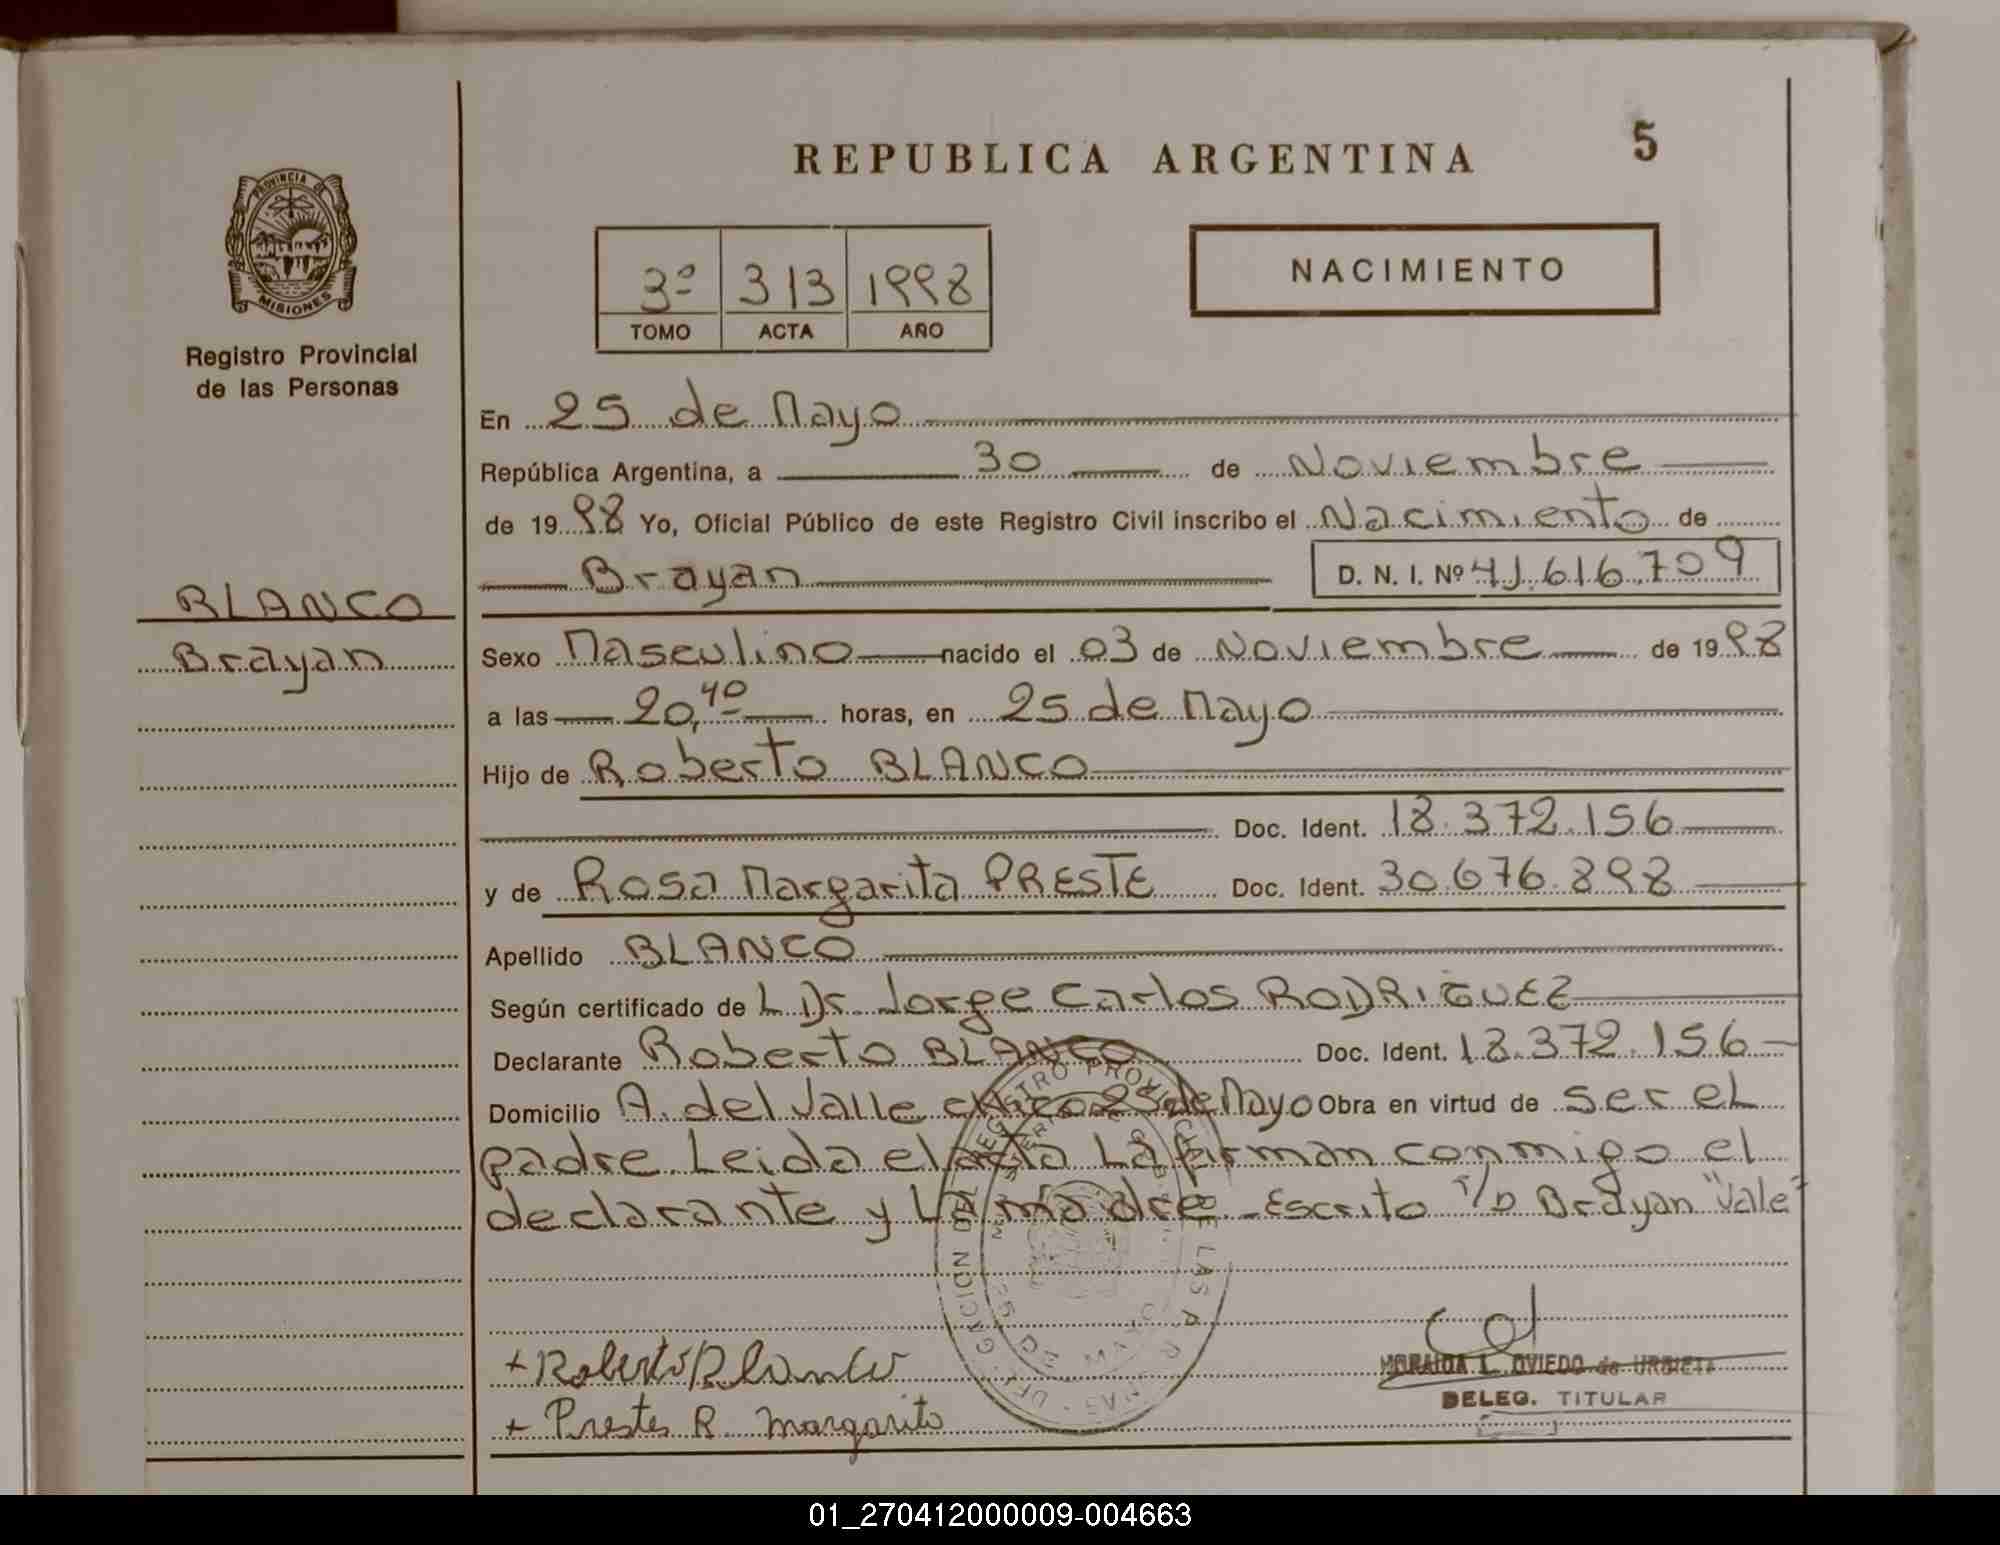 REPUBLICA ARGENTINA
5
PROVINCIA DE
MISIONES
Registro Provincial
de las Personas
3º 313 1998
TOMO ACTA AÑO
NACIMIENTO
En 25 de Mayo
República Argentina, a 30 de Noviembre
de 1998 Yo, Oficial Público de este Registro Civil inscribo el Nacimiento de
Brayan D. N. I. Nº 41.616.709
BLANCO
Brayan
Sexo Masculino nacido el 03 de Noviembre de 1998
a las 20,40 horas, en 25 de Mayo
Hijo de Roberto BLANCO
Doc. Ident. 18.372.156
y de Rosa Margarita PRESTE Doc. Ident. 30.676.898
Apellido BLANCO
Según certificado de L Dr. Jorge Carlos RODRIGUEZ
Declarante Roberto BLANCO Doc. Ident. 18.372.156
Domicilio A. del Valle chico 25 de Mayo Obra en virtud de ser el
padre. Leida el acta La firman conmigo el
declarante y La madre. Escrito Brayan "Vale"
+ Roberto Blanco
+ Prestes R. Margarito
MORAIDA L. OVIEDO de URBIETA
DELEG. TITULAR
01_270412000009-004663